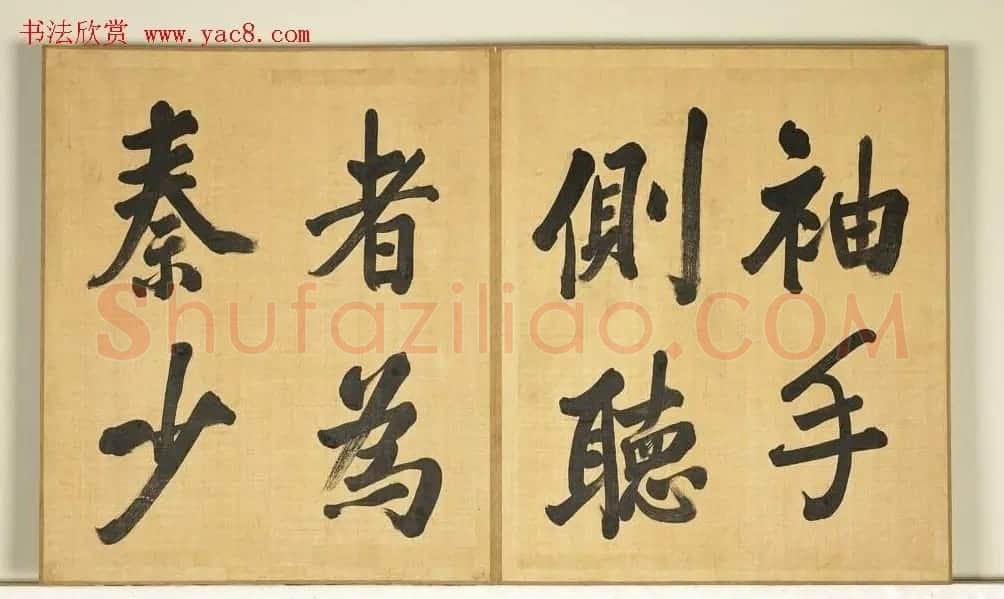 书法欣赏 www.yac8.com
袖手
側聽
者為
秦少
Shufaziliao.COM